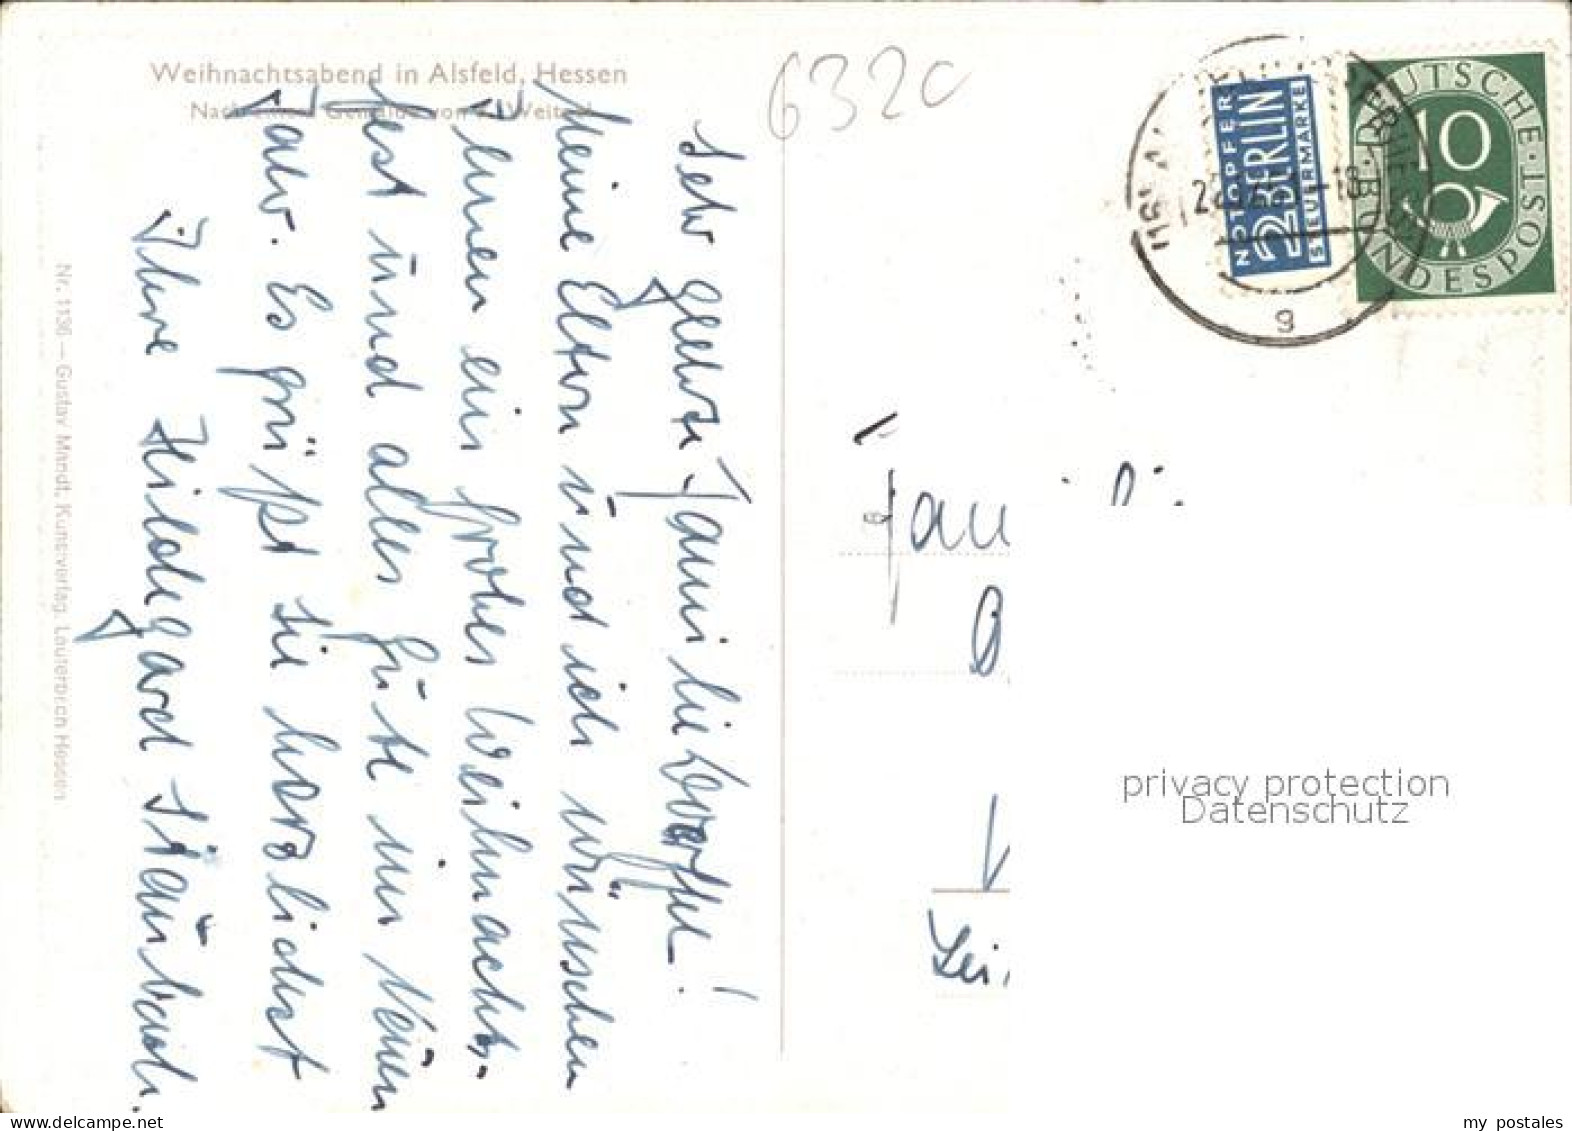 Weihnachtsabend in Alsfeld, Hessen
Nach einem Gemälde von
6320
NOTOPFER
2 BERLIN
STEUERMARKE
DEUTSCHE BUNDESPOST
10
g
Sehr geehrte Familie
Meine Eltern und ich wünschen
Ihnen ein frohes Weihnachts-
fest und alles Gute im Neuen
Jahr. Es grüßt sie herzlichst
Ihre Hildegard Stäubach.
Nr. 1136 — Gustav Mandt, Kunstverlag, Lauterbach Hessen
privacy protection
Datenschutz
my postales